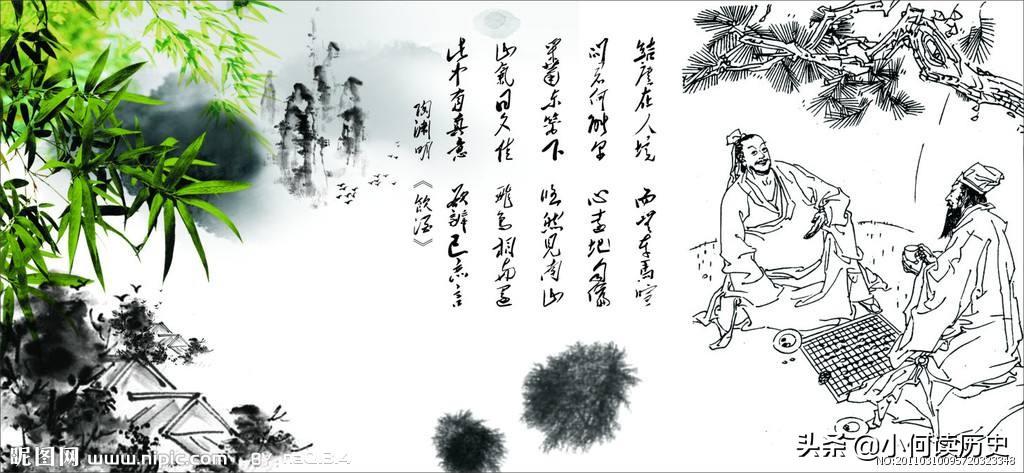 結廬在人境 而無車馬喧
问君何能尔 心遠地自偏
采菊东篱下 悠然見南山
山氣日夕佳 飛鳥相與還
此中有真意 欲辯已忘言
陶渊明《饮酒》
昵图网 www.nipic.com
头条 @小何读历史
NO:20110310095720323348